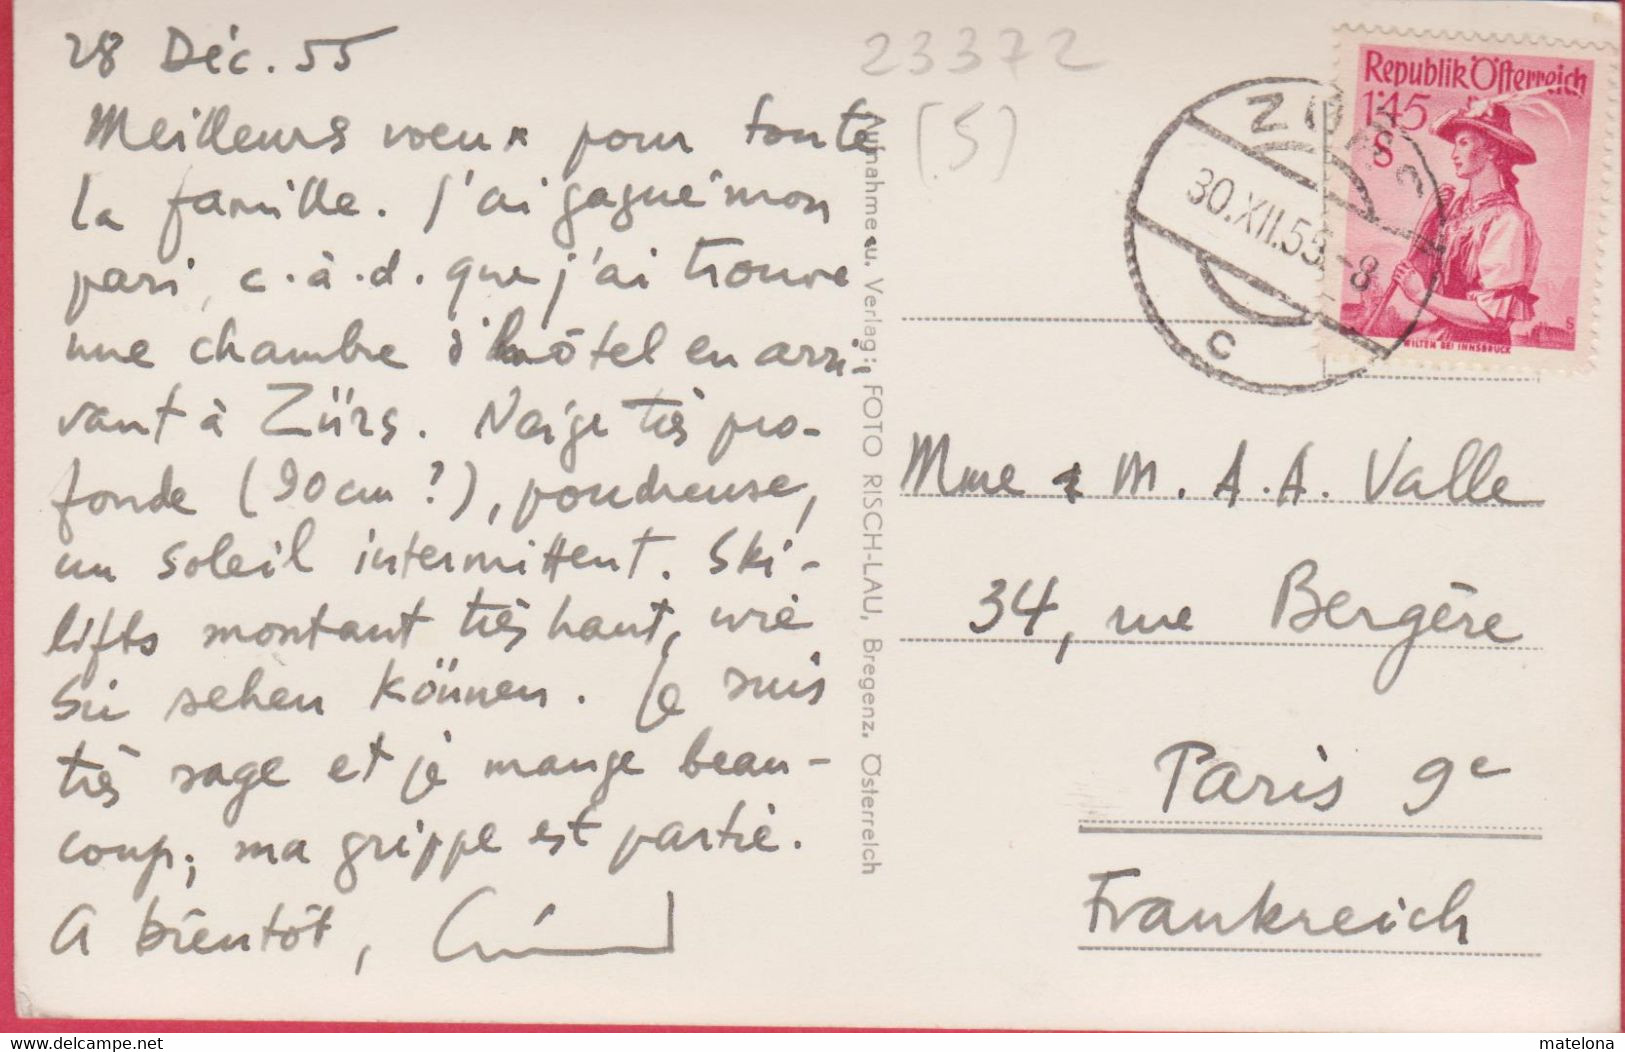 28 Déc. 55
Meilleurs voeux pour toute
la famille. J'ai gagné mon
pari, c.à.d. que j'ai trouvé
une chambre d'hôtel en arri-
vant à Zürs. Neige très pro-
fonde (90 cm?), poudreuse,
un soleil intermittent. Ski-
lifts montant très haut, wie
Sie sehen können. Je suis
très sage et je mange beau-
coup; ma grippe est partie.
A bientôt,
23372
(5)
Aufnahme u. Verlag: FOTO RISCH-LAU, Bregenz, Österreich
ZÜRS
30.XII.55.-8
c
Republik Österreich
1·45
S
WILTEN BEI INNSBRUCK
S
Mme & M. A.A. Valle
34, rue Bergère
Paris 9e
Frankreich
delcampe.net
matelona